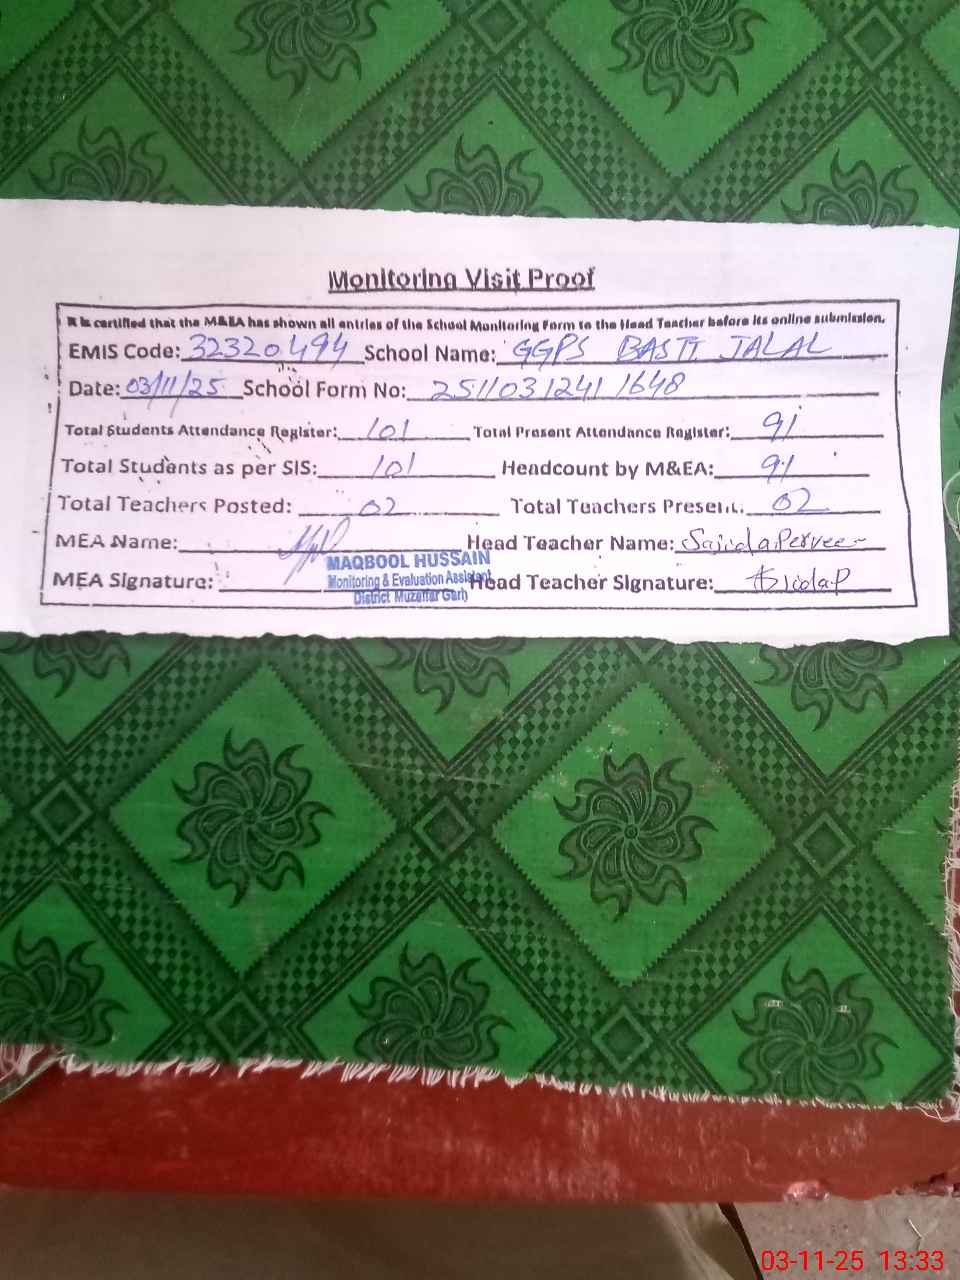 Monitoring Visit Proof
It is certified that the M&EA has shown all entries of the School Monitoring Form to the Head Teacher before its online submission.
EMIS Code: 32320494 School Name: GGPS BASTI JALAL
Date: 03/11/25 School Form No: 2511031241 1648
Total Students Attendance Register: 101 Total Present Attendance Register: 91
Total Students as per SIS: 101 Headcount by M&EA: 91
Total Teachers Posted: 02 Total Teachers Present: 02
MEA Name: Head Teacher Name: Sajida Perveen
MAQBOOL HUSSAIN
MEA Signature: Monitoring & Evaluation Assistant Head Teacher Signature:
District Muzaffar Garh
03-11-25 13:33